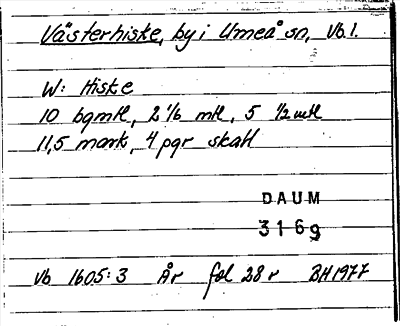 Västerhiske, by i Umeå sn, Vb l.
W: Hiske
10 bgmtl, 2 1/6 mtl, 5 1/2 mtl
11,5 mark, 4 pgr skatt
DAUM
3169
Vb 1605:3 År fol 28 r BH 1977